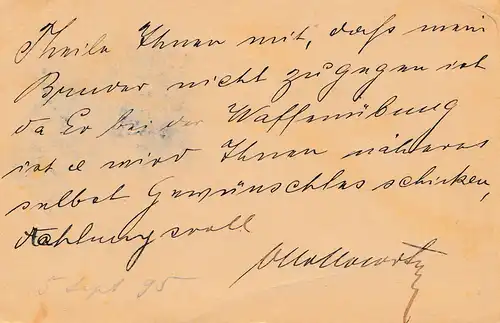 Theile Ihnen mit, daß mein
Bruder nicht zugegen ist
da Er bei der Waffenübung
ist e wird Ihnen näheres
selbst Gewünschtes schicken,
Achtungsvoll
5 Sept 95